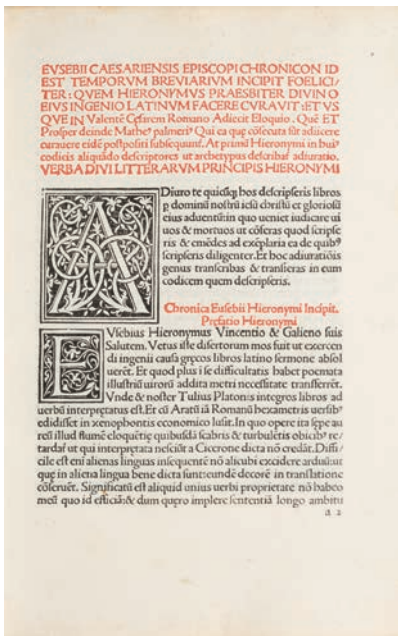 EVSEBII CAESARIENSIS EPISCOPI CHRONICON ID
EST TEMPORVM BREVIARIVM INCIPIT FOELICI/
TER: QVEM HIERONYMVS PRAESBITER DIVINO
EIVS INGENIO LATINVM FACERE CVRAVIT: ET VS
QVE IN Valentē Cęsarem Romano Adiecit Eloquio. Quē ET
Prosper deinde Matheꝰ palmeriꝰ Qui ea quę cōsecuta sūt adiicere
curauere eidē postpositi subsequunt̃. At primū Hieronymi in huiꝰ
codicis aliquādo descriptores ut archetypus describat̃ adiuratio.
VERBA DIVI LITTERARVM PRINCIPIS HIERONYMI
ADiuro te quicūq; hos descripseris libros
p dominū nostrū iesū christū et gloriosū
eius aduentū: in quo ueniet iudicare ui
uos & mortuos ut cōferas quod scripse
ris & emēdes ad exēplaria ea de quibꝰ
scripseris diligenter. Et hoc adiuratiōis
genus transcribas & transferas in eum
codicem quem descripseris.
Chronica Eusebii Hieronymi Incipit.
Prefatio Hieronymi
EVsebius Hieronymus Vincentio & Galieno suis
Salutem. Vetus iste disertorum mos fuit ut exercen
di ingenii causa gręcos libros latino sermone absol
uerēt. Et quod plus i se difficultatis habet poemata
illustriū uirorū addita metri necessitate transferrēt.
Vnde & noster Tulius Platonis integros libros ad
uerbū interpretatus est. Et cū Aratū iā Romanū hexametris uersibꝰ
edidisset in xenophontis economico lusit. In quo opere ita sępe au
reū illud flumē eloquētię quibusdā scabris & turbulētis obicibꝰ re/
tardat̃ ut qui interpretata nesciūt a Cicerone dicta nō credāt. Diffi/
cile est eni alienas linguas insequentē nō alicubi excidere arduū: ut
quę in aliena lingua bene dicta sunt: eundē decorē in translatione
cōseruēt. Significatū est aliquid unius uerbi proprietate nō habeo
meū quo id efficiā: & dum quero implere sententiā longo ambitu
a 2